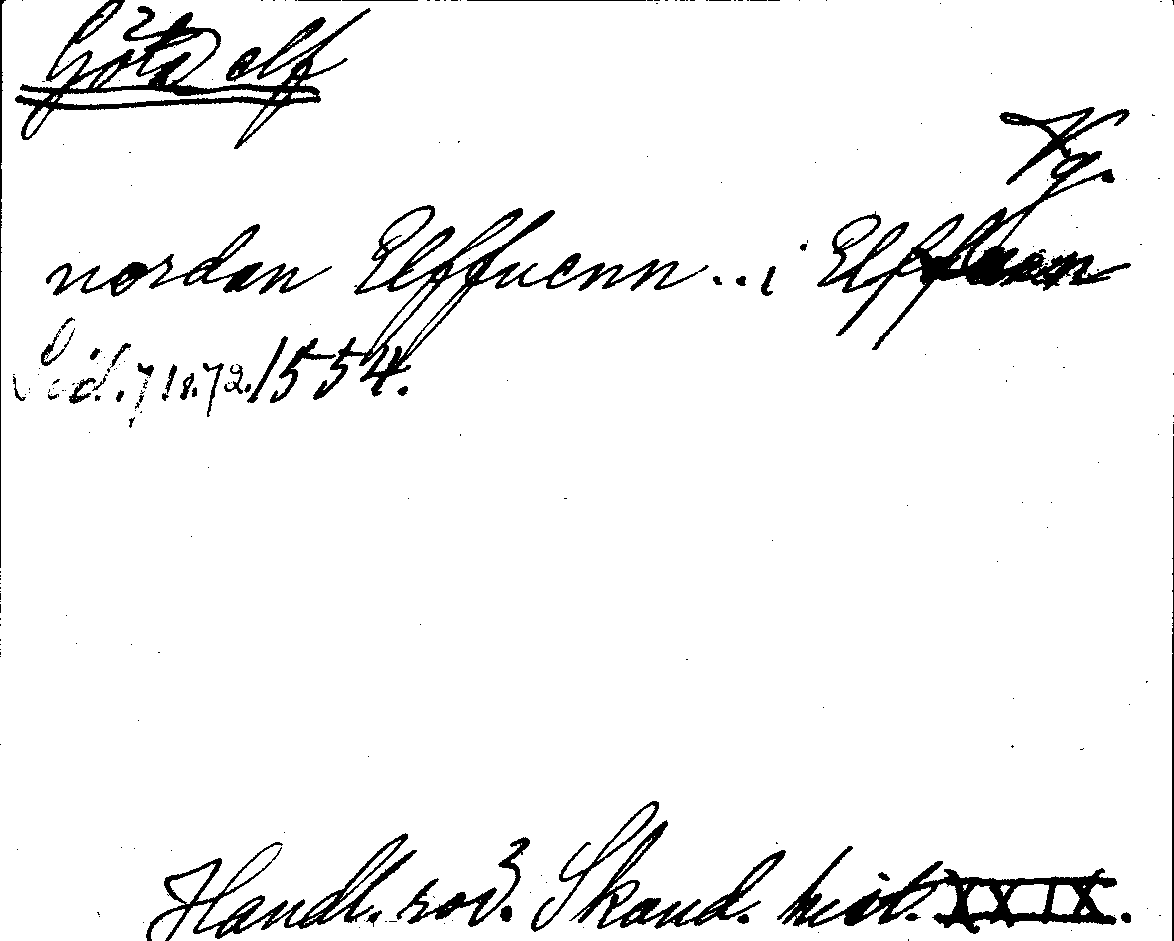 Göta elf
Vg.
nordan Elffuenn .. i
Sid. 71 1554.
Handl. rör. Skand. hist. XXIX.